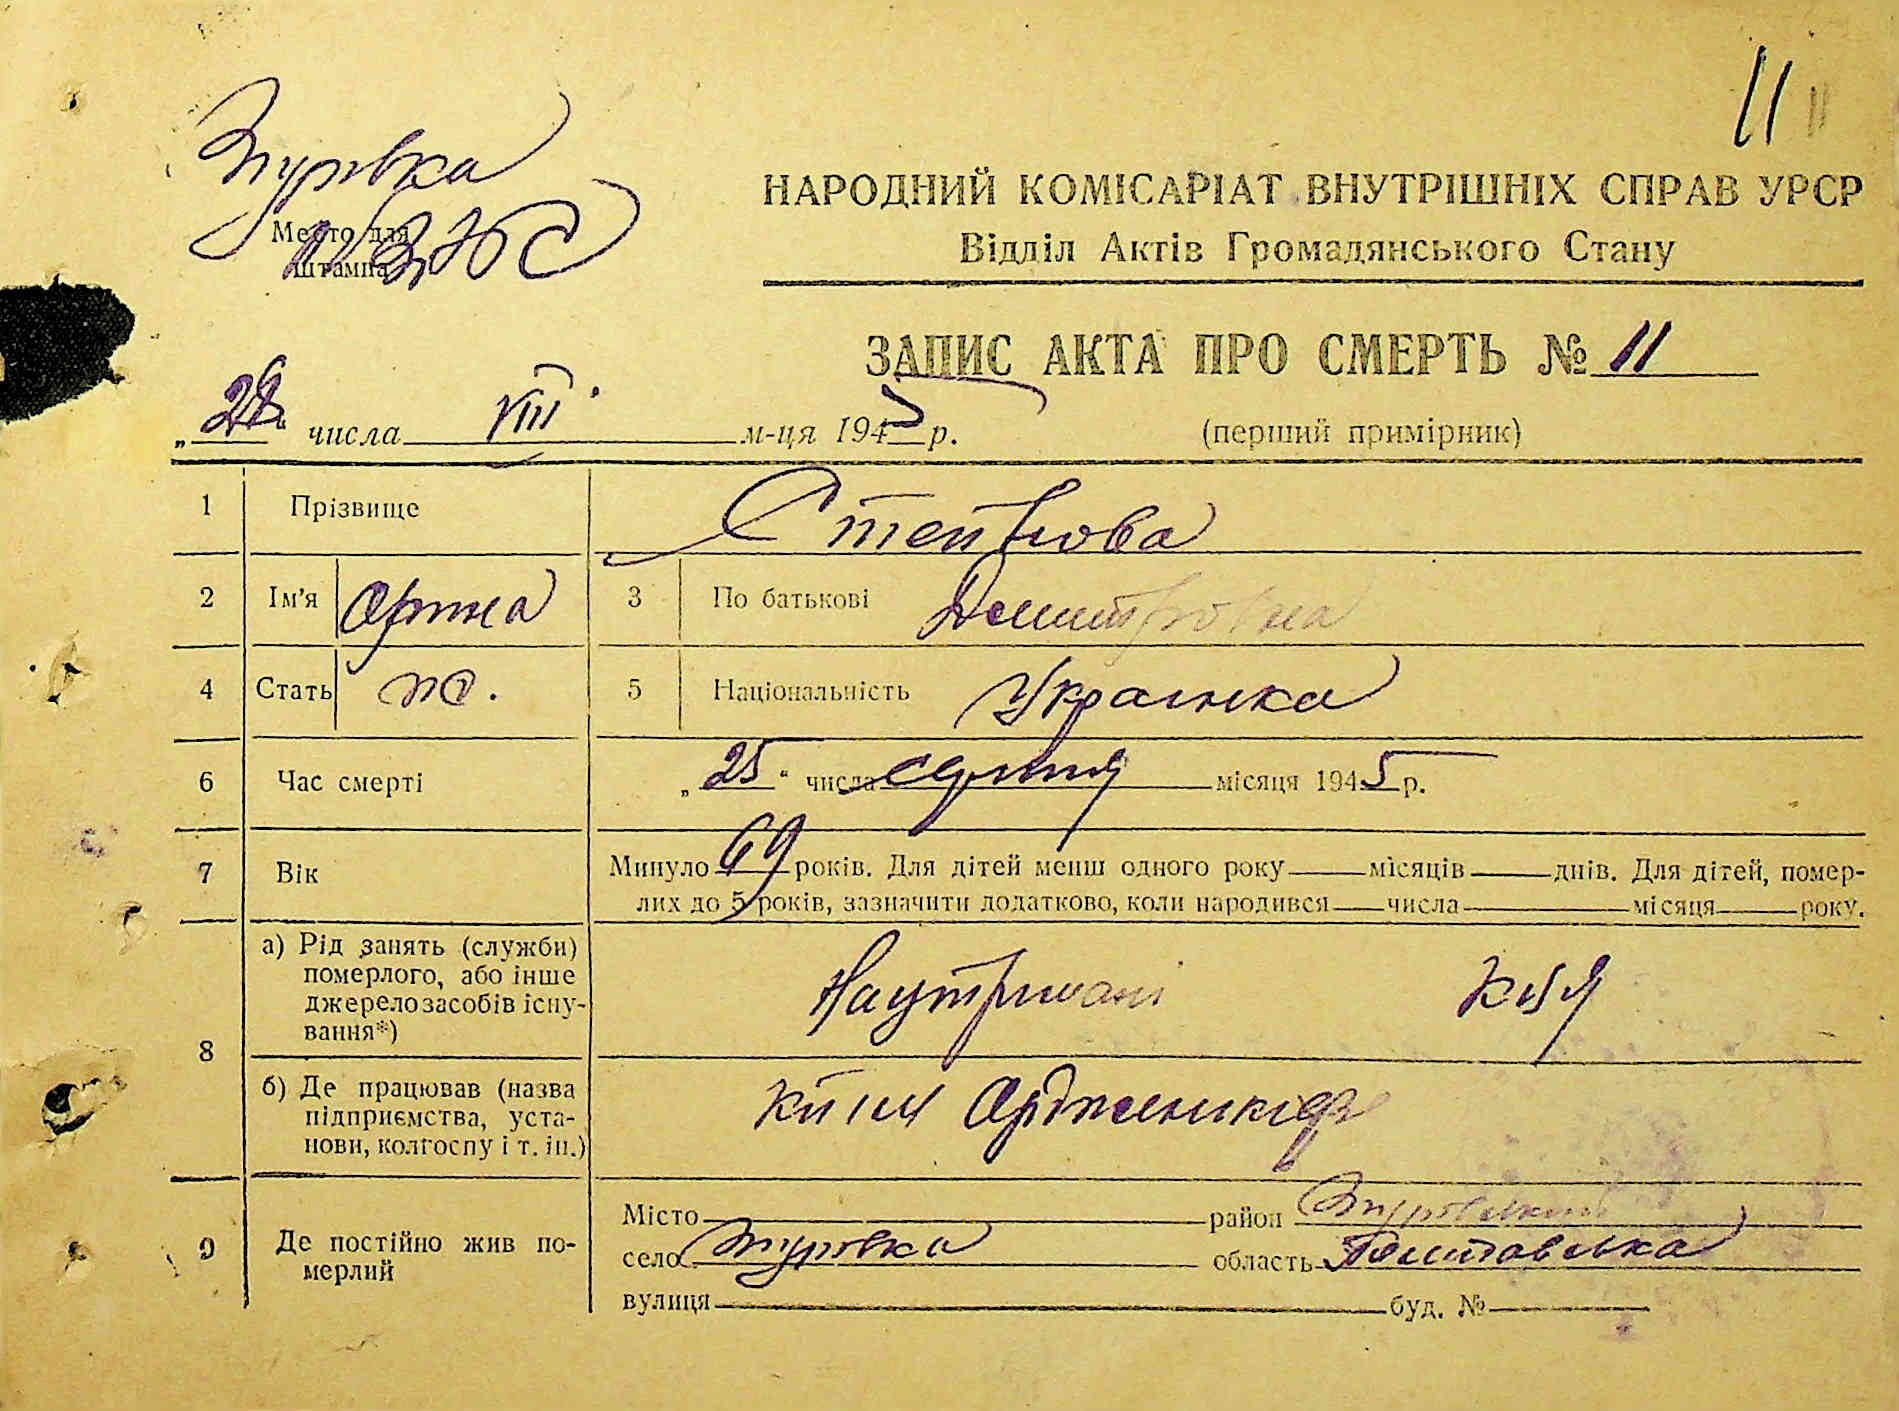 11 11
Згурівка
Место для
штампа
ЗАГС
НАРОДНИЙ КОМІСАРІАТ ВНУТРІШНІХ СПРАВ УРСР
Відділ Актів Громадянського Стану
ЗАПИС АКТА ПРО СМЕРТЬ № 11
„28“ числа VIII м-ця 1945 р. (перший примірник)
1 Прізвище
2 Ім'я Орина 3 По батькові Демитровна
4 Стать ж. 5 Національність Українка
6 Час смерті „25“ числа серпня місяця 1945 р.
7 Вік Минуло 69 років. Для дітей менш одного року місяців днів. Для дітей, помер-
лих до 5 років, зазначити додатково, коли народився числа місяця року.
8 а) Рід занять (служби)
померлого, або інше
джерело засобів існу-
вання*)
На утриманні
б) Де працював (назва
підприємства, уста-
нови, колгоспу і т. ін.)
9 Де постійно жив по-
мерлий
Місто район Згурівський
село Згурівка область Полтавська
вулиця буд. №